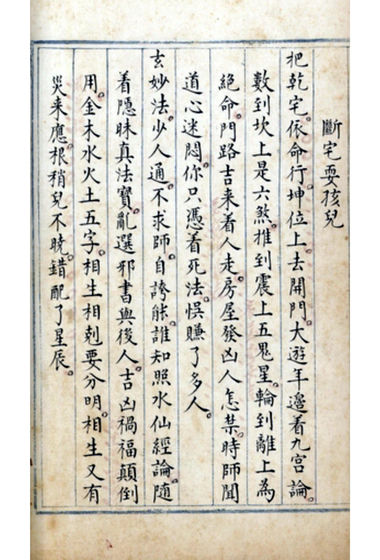 斷宅耍孩兒
把乾宅。依命行。坤位上去開門。大遊年邊看九宮論。
數到坎上是六煞。推到震上五鬼星。輪到離上為
絕命。門路吉來看人走。房屋發凶人怎禁。時師聞
道心迷悶。你只憑着死法。悞賺了多人。
玄妙法。少人通。不求師。自誇能。誰知照水仙經論。随
着隱昧真法寶。亂選邪書與後人。吉凶禍福顛倒
用。金木水火土五字。相生相剋要分明。相生又有
災来應。根稍兒不曉。錯配了星辰。